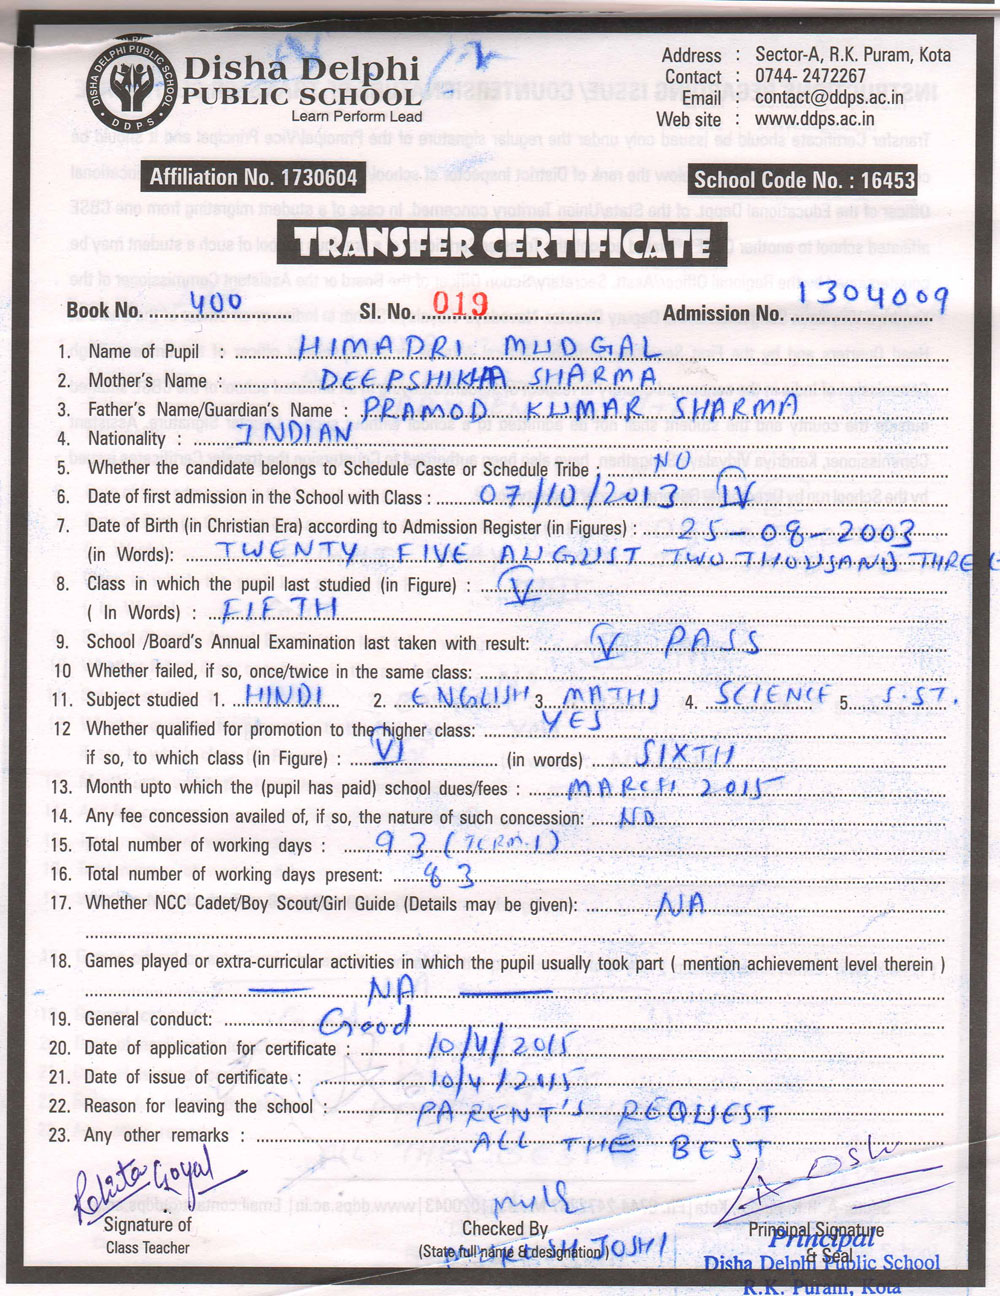 Disha Delphi
PUBLIC SCHOOL
Learn Perform Lead
DISHA DELPHI PUBLIC SCHOOL
DDPS
Address : Sector-A, R.K. Puram, Kota
Contact : 0744- 2472267
Email : contact@ddps.ac.in
Web site : www.ddps.ac.in
Affiliation No. 1730604
School Code No. : 16453
TRANSFER CERTIFICATE
Book No. 400 Sl. No. 019 Admission No. 1304009
1. Name of Pupil : HIMADRI MUDGAL
2. Mother's Name : DEEPSHIKHA SHARMA
3. Father's Name/Guardian's Name : PRAMOD KUMAR SHARMA
4. Nationality : INDIAN
5. Whether the candidate belongs to Schedule Caste or Schedule Tribe : NO
6. Date of first admission in the School with Class : 07/10/2013 IV
7. Date of Birth (in Christian Era) according to Admission Register (in Figures) : 25-08-2003
(in Words): TWENTY FIVE AUGUST TWO THOUSAND THREE
8. Class in which the pupil last studied (in Figure) : V
( In Words) : FIFTH
9. School /Board's Annual Examination last taken with result: V PASS
10 Whether failed, if so, once/twice in the same class:
11. Subject studied 1. HINDI 2. ENGLISH 3. MATHS 4. SCIENCE 5. S.ST.
12 Whether qualified for promotion to the higher class: YES
if so, to which class (in Figure) : VI (in words) SIXTH
13. Month upto which the (pupil has paid) school dues/fees : MARCH 2015
14. Any fee concession availed of, if so, the nature of such concession: NO
15. Total number of working days : 93 (TERM-1)
16. Total number of working days present: 83
17. Whether NCC Cadet/Boy Scout/Girl Guide (Details may be given): NA
18. Games played or extra-curricular activities in which the pupil usually took part ( mention achievement level therein )
NA
19. General conduct: Good
20. Date of application for certificate : 10/4/2015
21. Date of issue of certificate : 10/4/2015
22. Reason for leaving the school : PARENT'S REQUEST
23. Any other remarks : ALL THE BEST
Goyal
Signature of
Class Teacher
Checked By
(State full name & designation)
JOSHI
Principal Signature
& Seal
Principal
Disha Delphi Public School
R.K. Puram, Kota